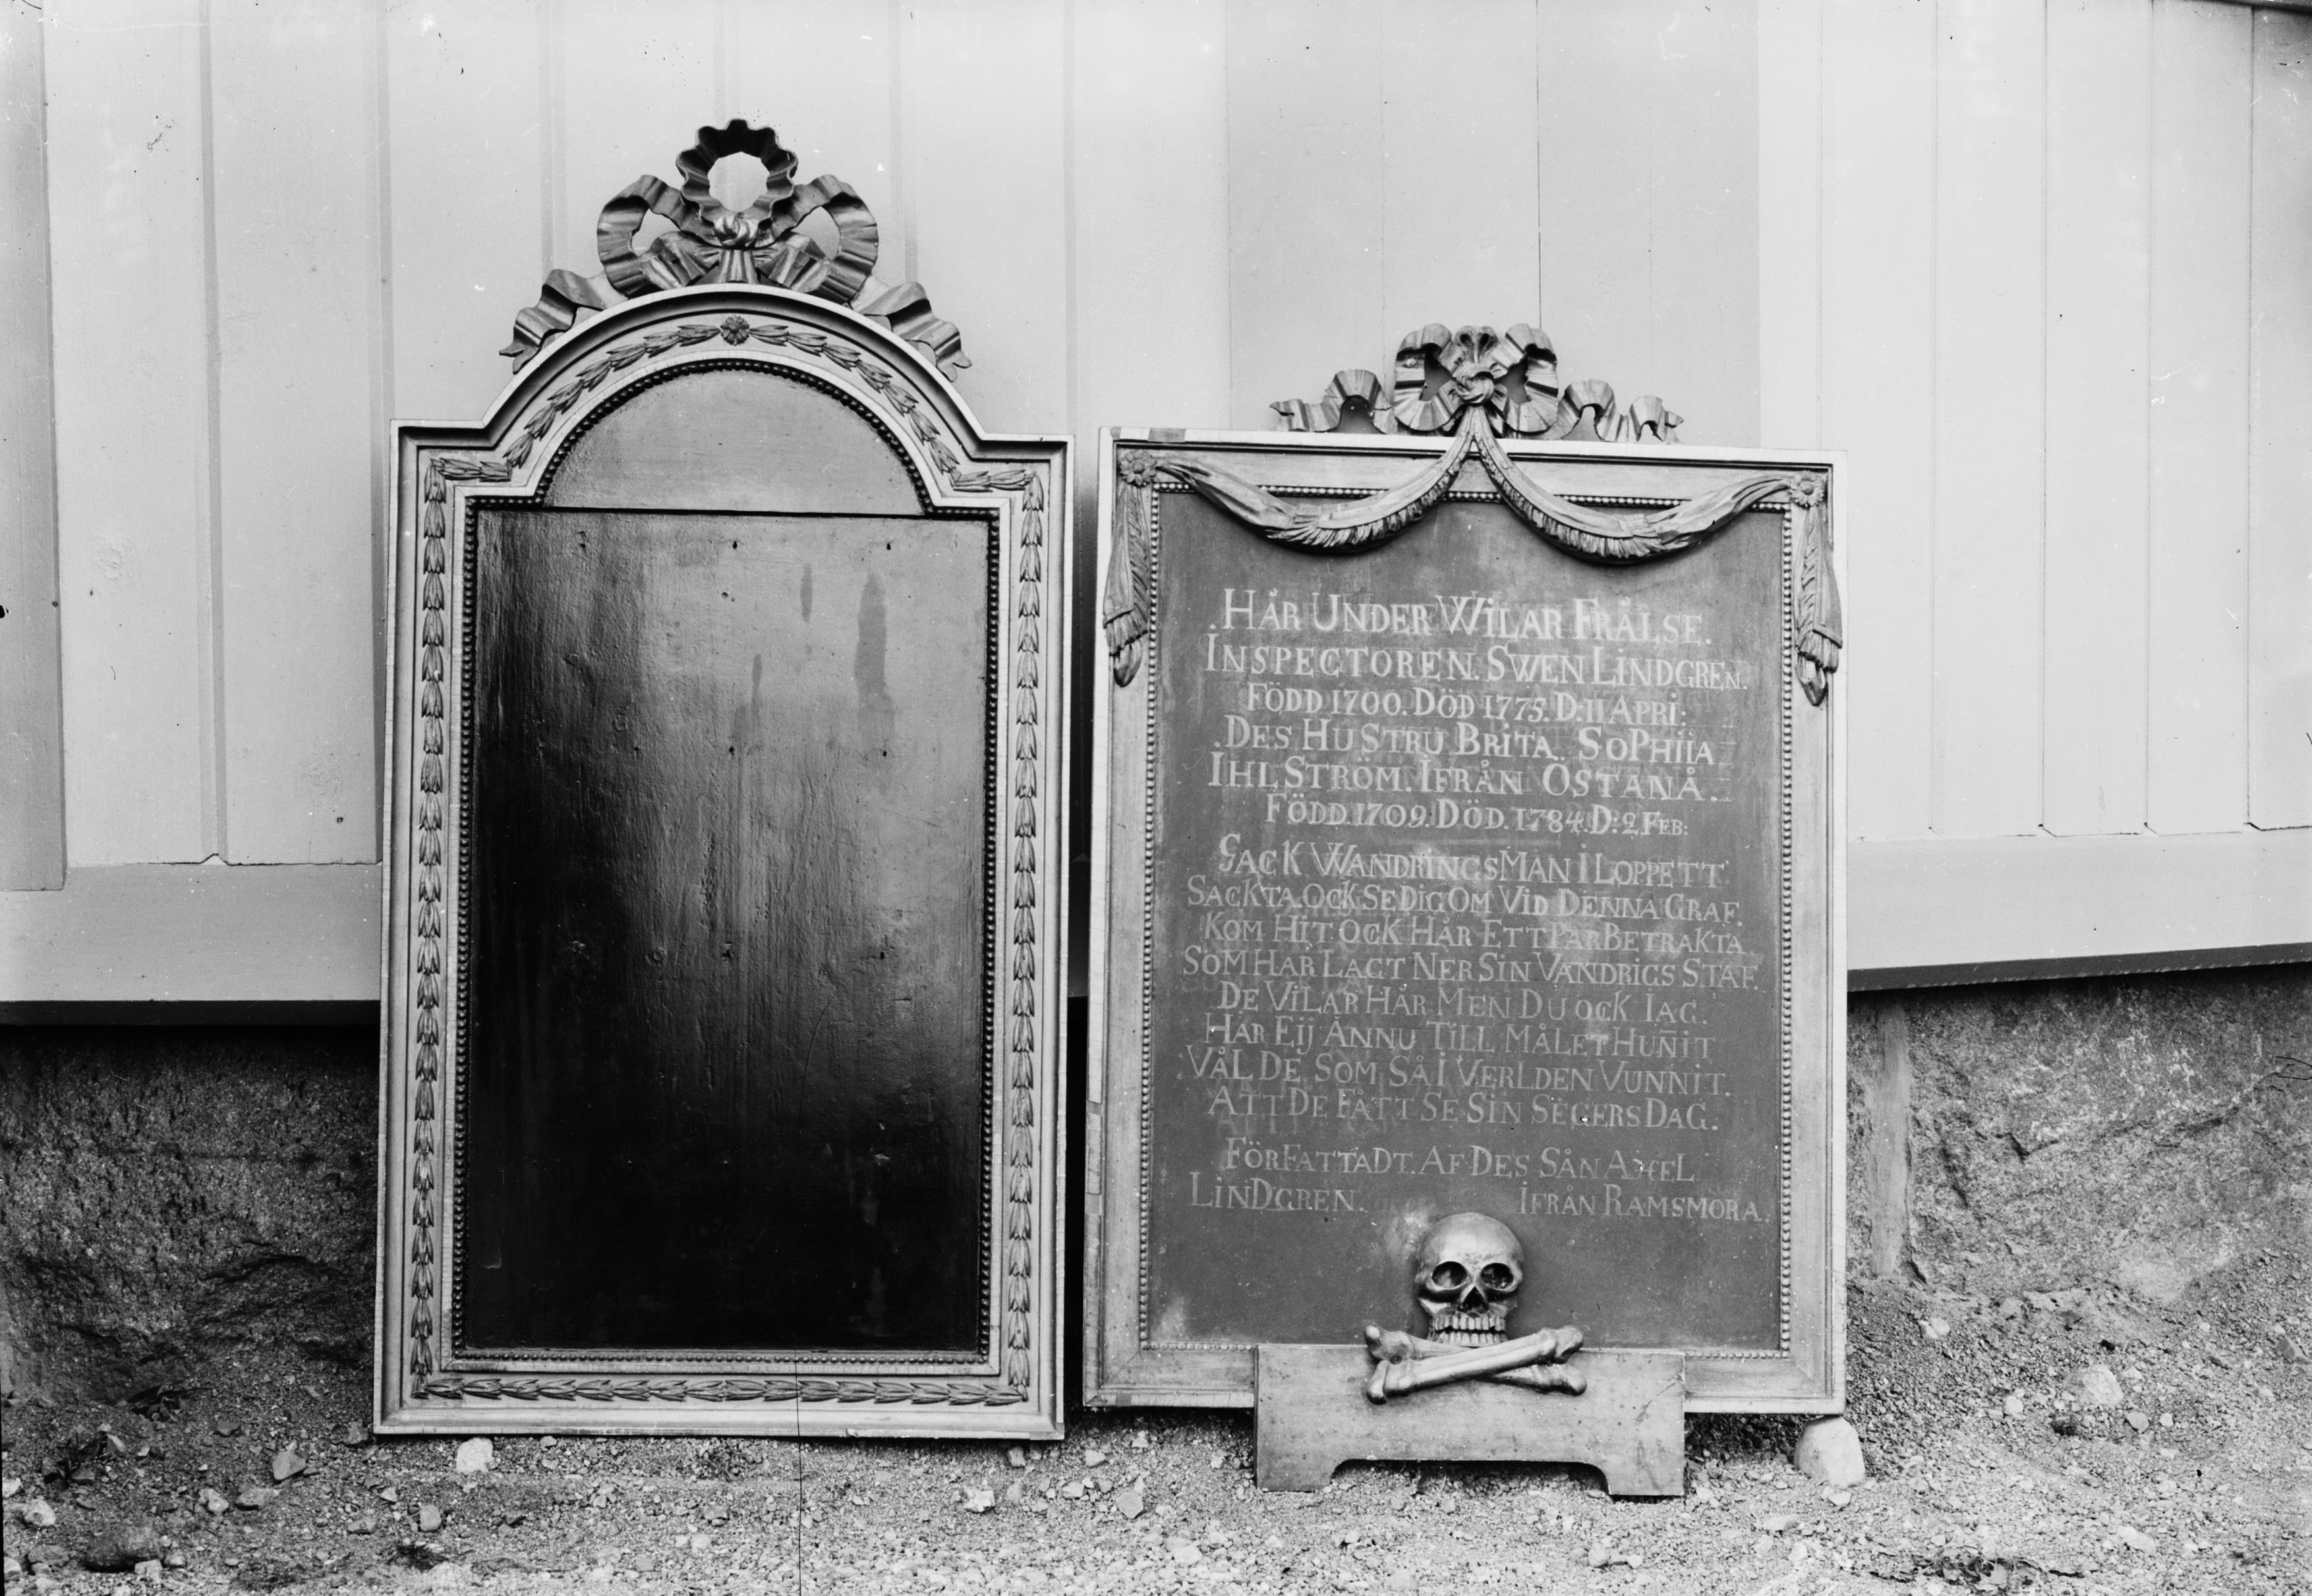 HÅR UNDER WILAR FRÅLSE.
INSPECTOREN. SWEN LINDGREN.
FÖDD 1700. DÖD 1775. D: 11 APRI:
DES HUSTRU BRITA. SOPHIIA
IHLSTRÖM. IFRÅN ÖSTANÅ.
FÖDD. 1709. DÖD. 1784. D: 2 FEB:
GACK WANDRINGSMAN I LOPPETT
SACKTA OCK SE DIG OM VID DENNA GRAF.
KOM HIT OCK HÅR ETT PAR BETRAKTA
SOM HAR LAGT NER SIN VANDRIGS STAF.
DE VILAR HÅR MEN DU OCK IAG.
HAR EIJ ÄNNU TILL MÅLET HUN̄IT
VÅL DE SOM SÅ I VERLDEN VUNNIT.
ATT DE FÅTT SE SIN SEGERS DAG.
FÖRFATTADT. AF DES SÅN
LINDGREN. IFRÅN RAMSMORA.